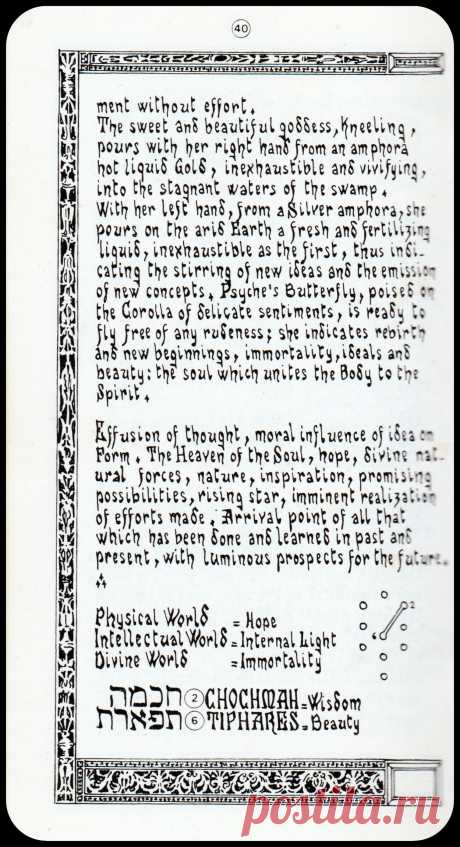 40
ment without effort.
The sweet and beautiful goddess, kneeling,
pours with her right hand from an amphora
hot liquid Gold, inexhaustible and vivifying,
into the stagnant waters of the swamp.
With her left hand, from a Silver amphora, she
pours on the arid Earth a fresh and fertilizing
liquid, inexhaustible as the first, thus indi-
cating the stirring of new ideas and the emission
of new concepts. Psyche's Butterfly, poised on
the Corolla of delicate sentiments, is ready to
fly free of any rudeness; she indicates rebirth
and new beginnings, immortality, ideals and
beauty: the soul which unites the Body to the
Spirit.
Effusion of thought, moral influence of idea on
Form. The Heaven of the Soul, hope, divine nat-
ural forces, nature, inspiration, promising
possibilities, rising star, imminent realization
of efforts made. Arrival point of all that
which has been done and learned in past and
present, with luminous prospects for the future.
2
6
Physical World = Hope
Intellectual World = Internal Light
Divine World = Immortality
חכמה 2 CHOCHMAH = Wisdom
תפארת 6 TIPHARES = Beauty
postila.ru